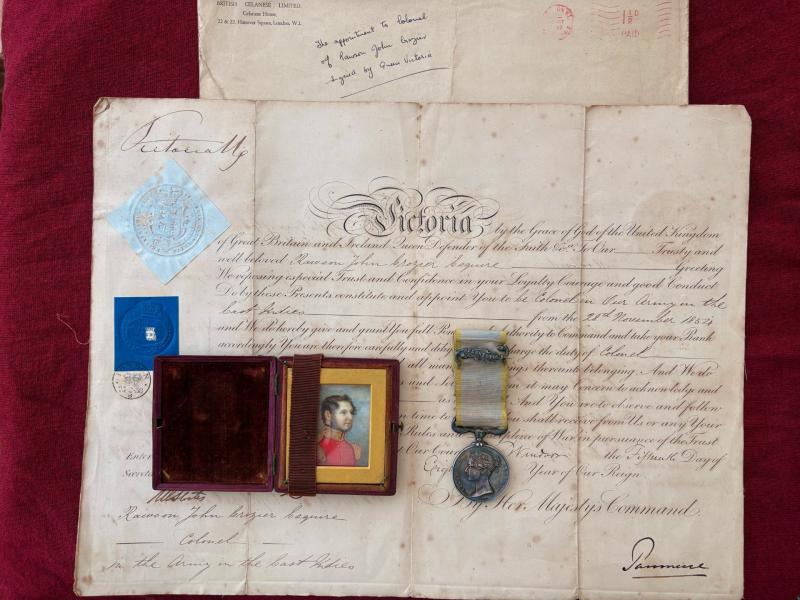 BRITISH CELANESE LIMITED.
Celanese House,
22 & 23, Hanover Square, London, W.1.
The appointment to Colonel
of Rawson John Crozier
signed by Queen Victoria
1½D
PAID
Victoria R
Victoria by the Grace of God of the United Kingdom
of Great Britain and Ireland Queen Defender of the Faith &c. To Our Trusty and
well beloved Rawson John Crozier Esquire Greeting
We reposing especial Trust and Confidence in your Loyalty Courage and good Conduct
Do by these Presents constitute and appoint You to be Colonel in Our Army in the
East Indies from the 28th November 1854
and We do hereby give and grant You full authority to Command and take your Rank
accordingly You are therefore carefully and discharge the duty of Colonel
all thereunto belonging And We do
and it may Concern to acknowledge and
as And You to observe and follow
time to shall receive from Us or any Your
Rules and Discipline of War in pursuance of the Trust
At Our Court Windsor the Fifteenth Day of
Year of Our Reign
By Her Majesty's Command
Rawson John Crozier Esquire
Colonel
in the Army in the East Indies
Panmure